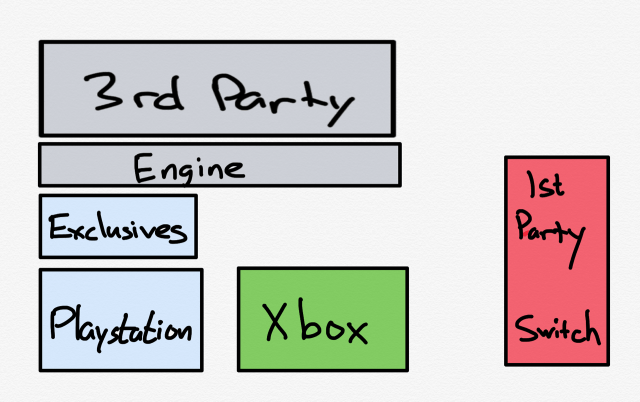 3rd Party
Engine
Exclusives
Playstation
Xbox
1st
Party
Switch